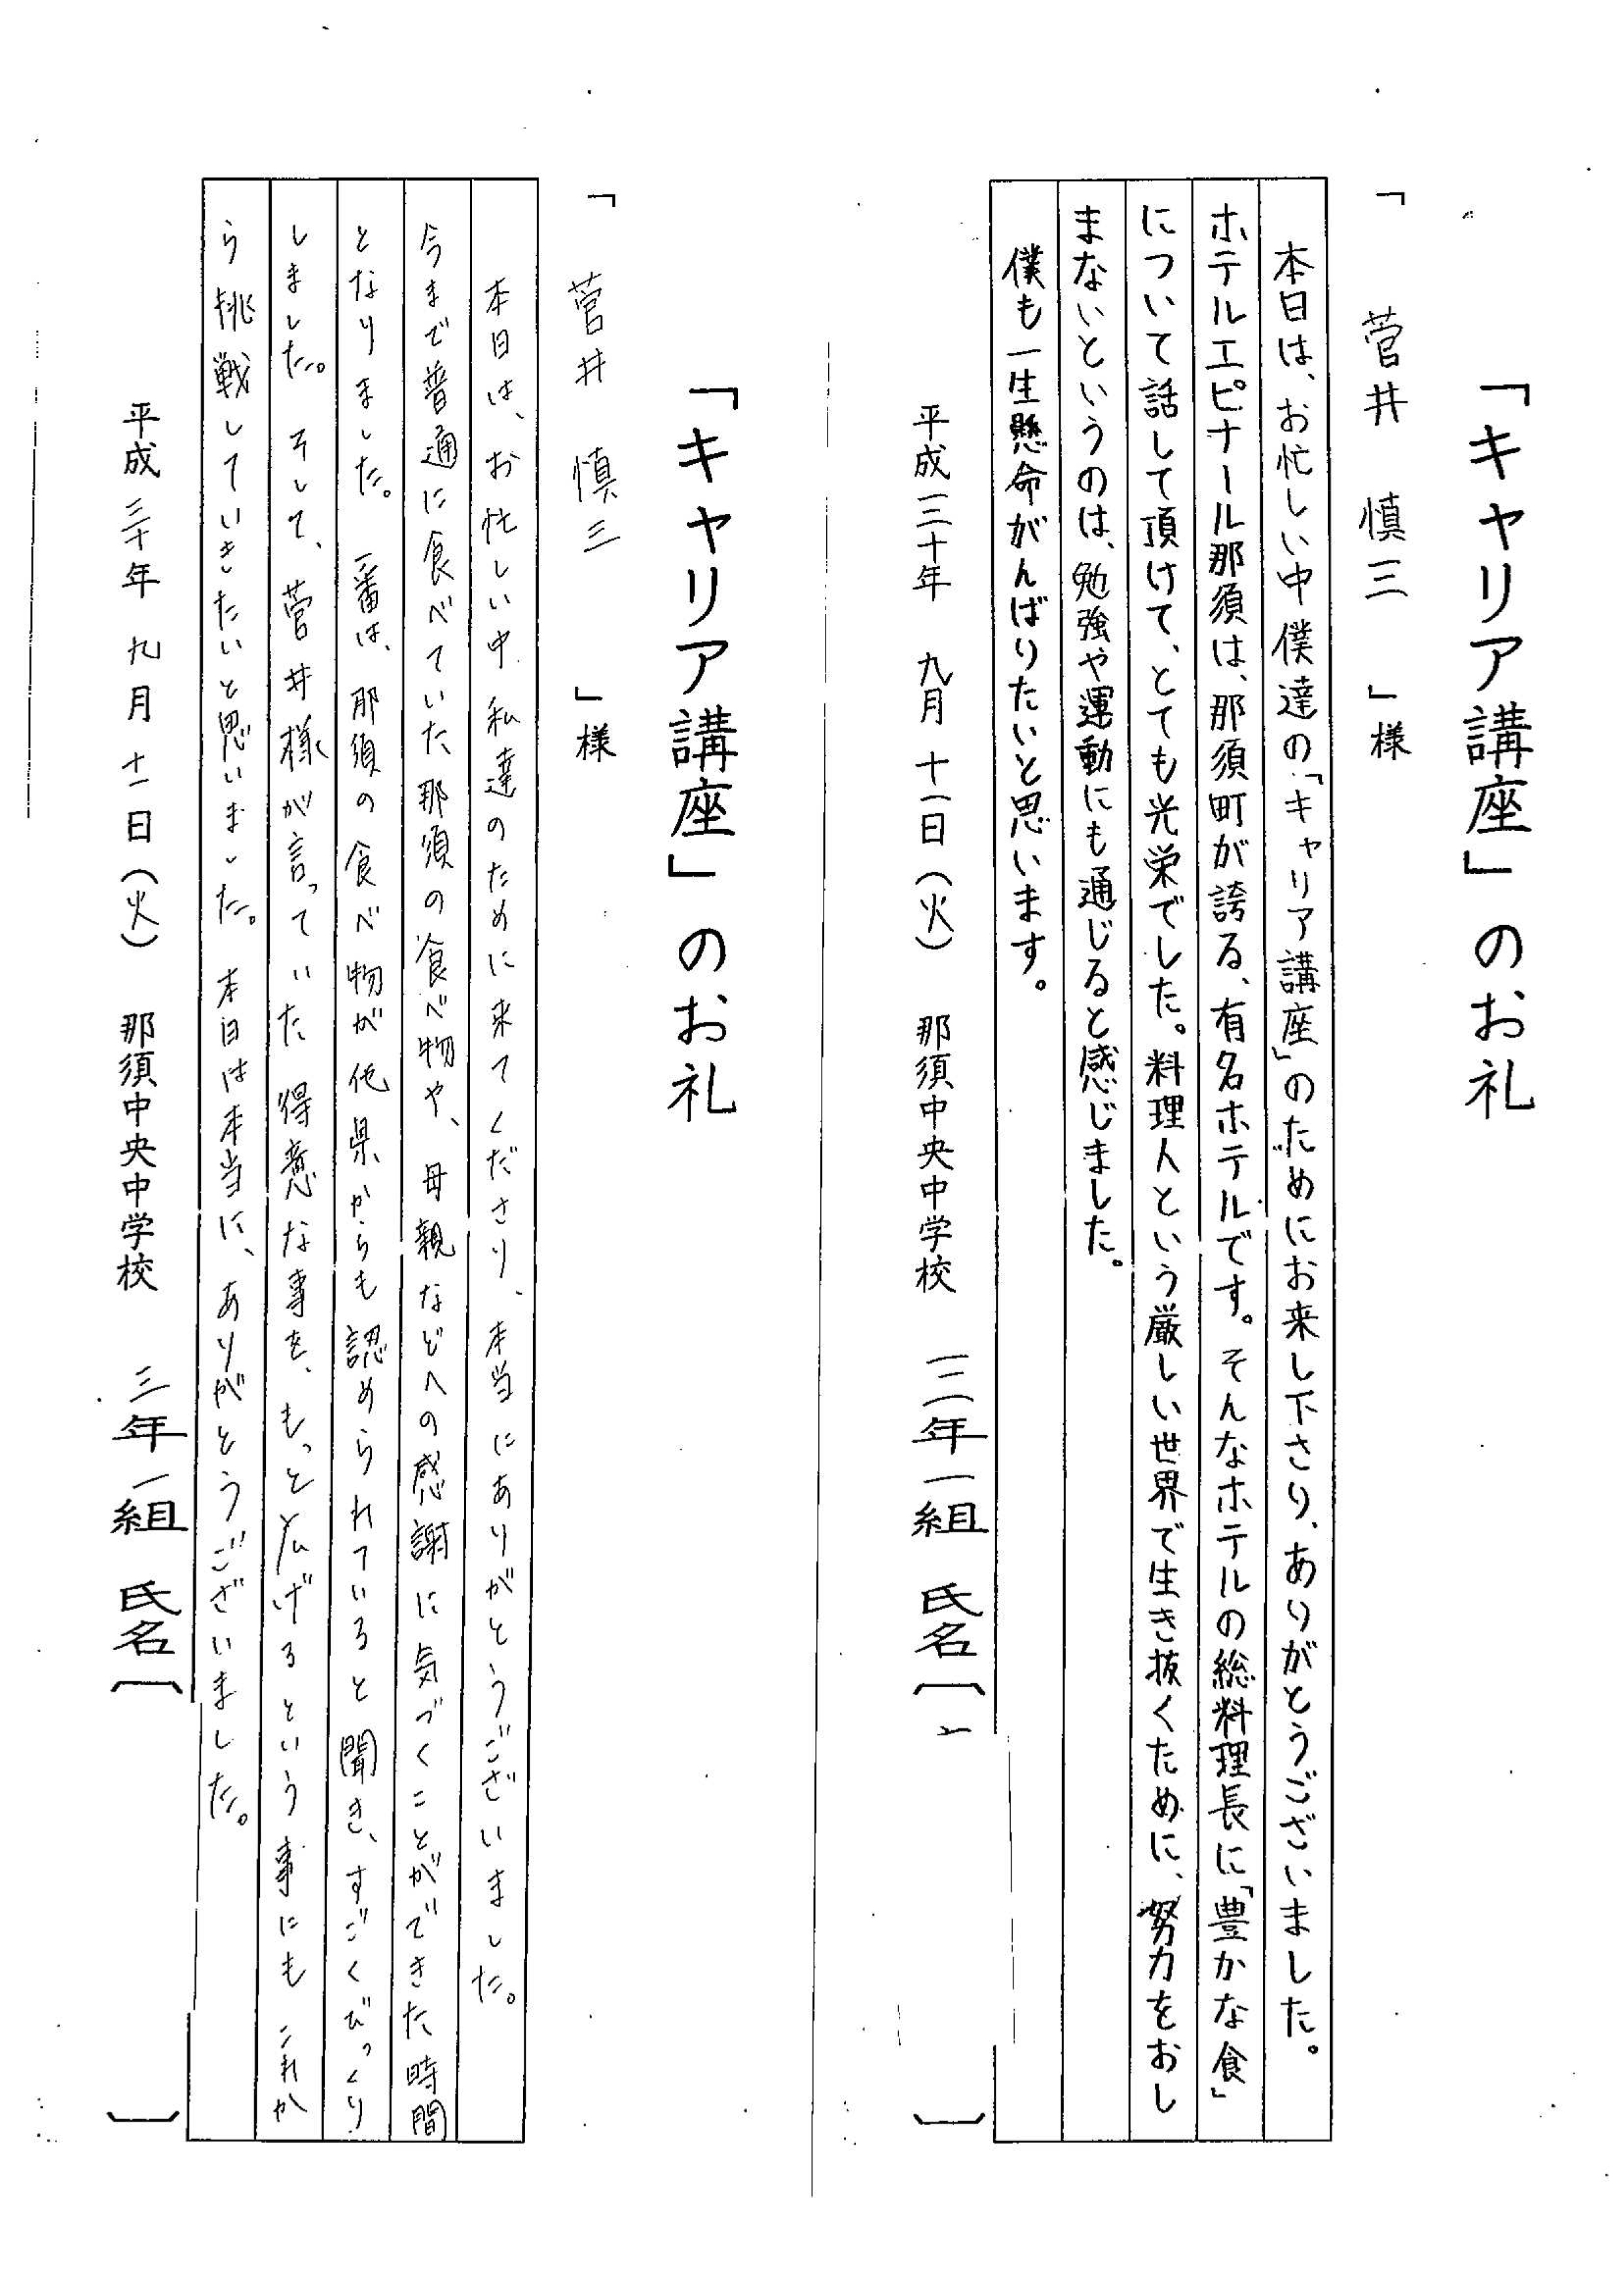 「キャリア講座」のお礼
「　菅井　慎三　」様
本日は、お忙しい中僕達の「キャリア講座」のためにお来し下さり、ありがとうございました。
ホテルエピナール那須は、那須町が誇る、有名ホテルです。そんなホテルの総料理長に「豊かな食」
について話して頂けて、とても光栄でした。料理人という厳しい世界で生き抜くために、努力をおし
まないというのは、勉強や運動にも通じると感じました。
僕も一生懸命がんばりたいと思います。
平成三十年　九月　十一日（火）　那須中央中学校　三年一組　氏名〔　〕
「キャリア講座」のお礼
「　菅井　慎三　」様
本日は、お忙しい中私達のために来てくださり、本当にありがとうございました。
今まで普通に食べていた那須の食べ物や、母親などへの感謝に気づくことができた時間
となりました。一番は、那須の食べ物が他県からも認められていると聞き、すごくびっくり
しました。そして、菅井様が言っていた得意な事を、もっと広げるという事にもこれか
ら挑戦していきたいと思いました。本日は本当に、ありがとうございました。
平成三十年　九月　十一日（火）　那須中央中学校　三年一組　氏名〔　〕